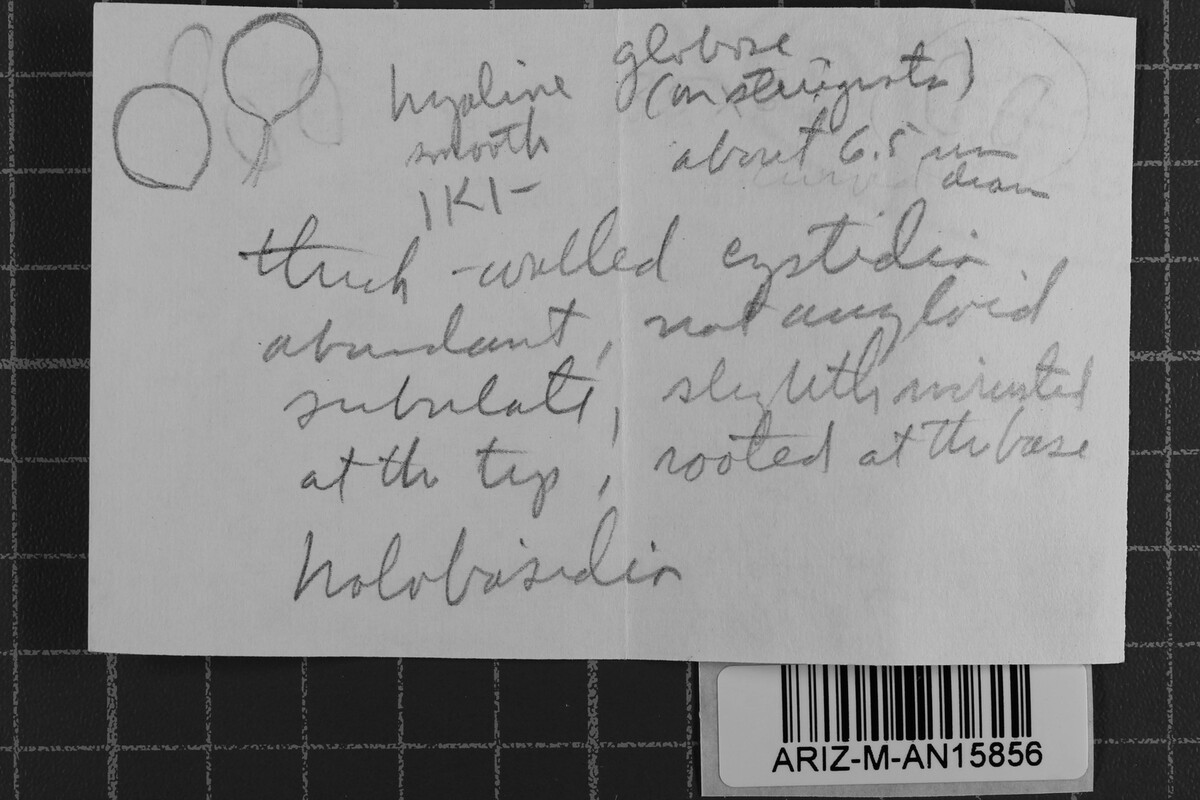 hyaline globose
(on sterigmata)
smooth about 6.5 um
diam
IKI-
thick-walled cystidia
abundant, not amyloid
subulate, slightly incrusted
at the tip, rooted at the base
holobasidia
ARIZ-M-AN15856